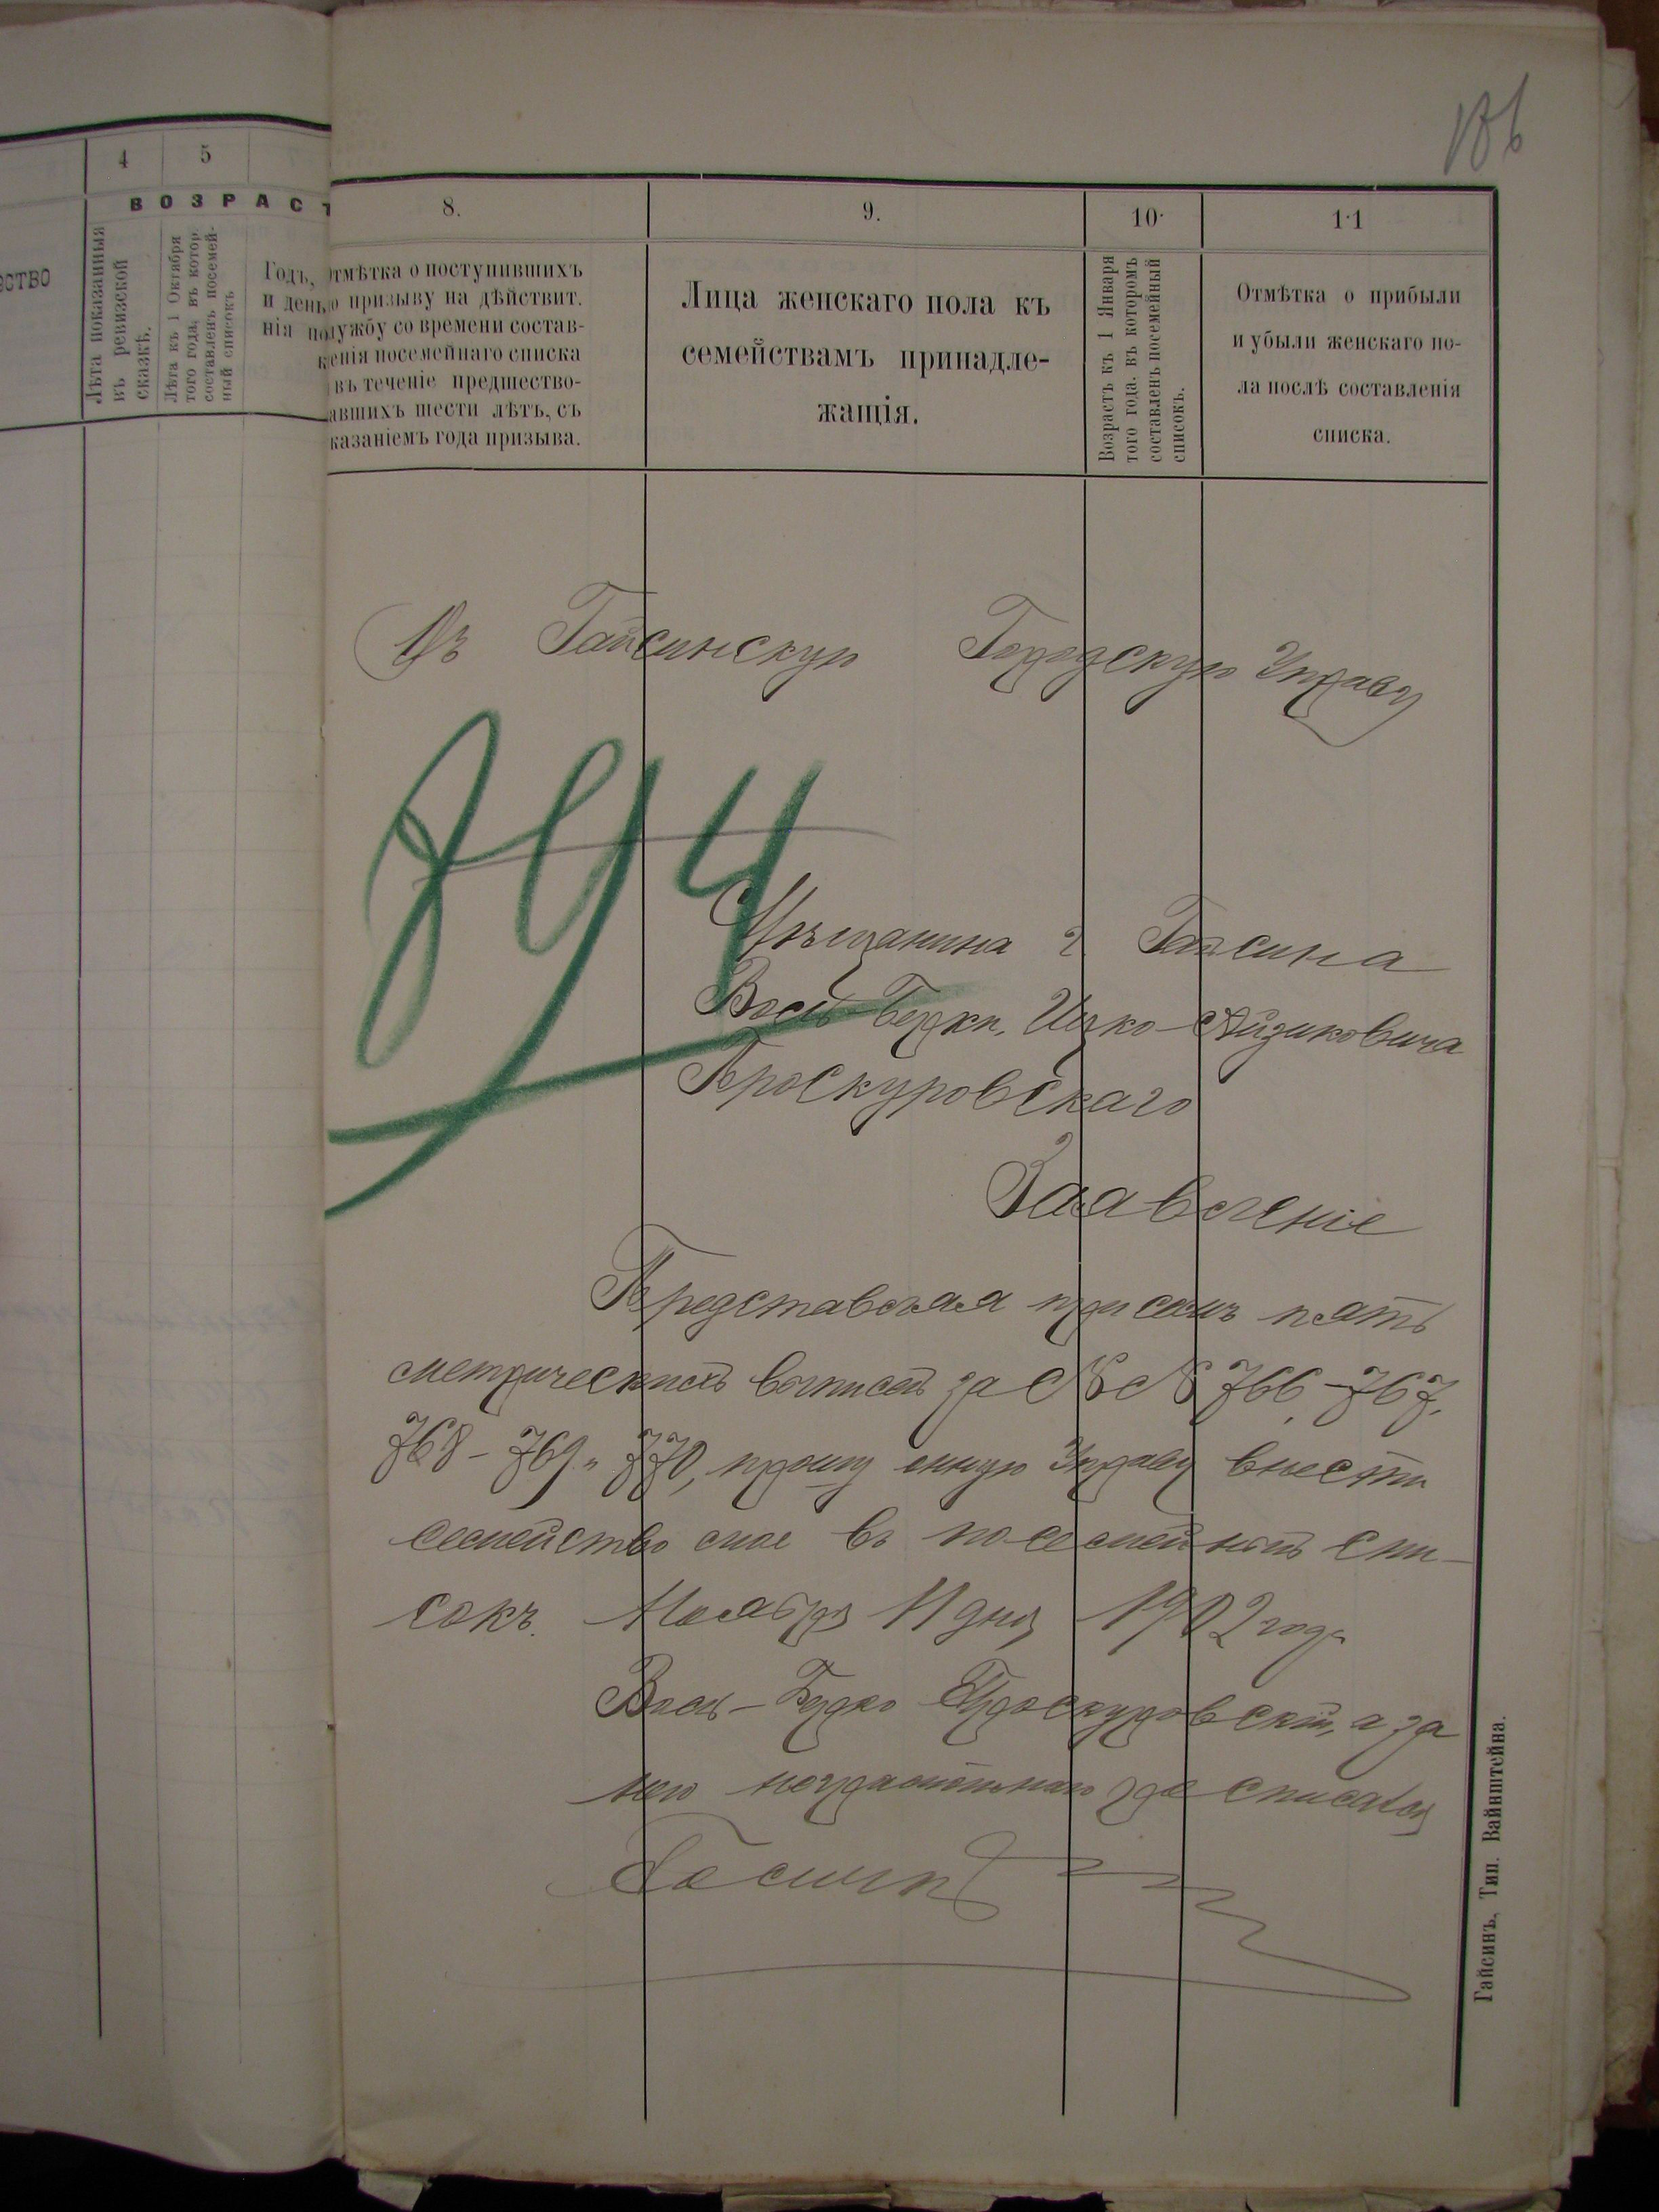 186
4 5
ВОЗРАСТ
Лѣта показанныя
въ ревизской
сказкѣ.
Лѣта къ 1 Октября
того года, въ котор.
составленъ посемей-
ный списокъ
Годъ,
и день
нія
8.
отмѣтка о поступившихъ
по призыву на дѣйствит.
службу со времени состав-
ленія посемейнаго списка
въ теченіе предшество-
авшихъ шести лѣтъ, съ
казаніемъ года призыва.
9.
Лица женскаго пола къ
семействамъ принадле-
жащія.
10.
Возрастъ къ 1 Января
того года. въ которомъ
составленъ посемейный
списокъ.
11
Отмѣтка о прибыли
и убыли женскаго по-
ла послѣ составленія
списка.
Въ Гайсинскую Городскую Управу
794
Мѣщанина г Гайсина
Берки, Ицко-Айзиковича
Проскуровскаго
Заявленіе
Представляя при семъ пять
метрическихъ выписей за №№ 766, 767,
768 - 769 и 770, прошу оную Управу внести
семейство мое въ посемейный спи-
сокъ. Ноября 11 дня 1902 года
Берко Проскуровскій, а за
него неграмотнаго
Гайсинъ, Тип. Вайнштейна.